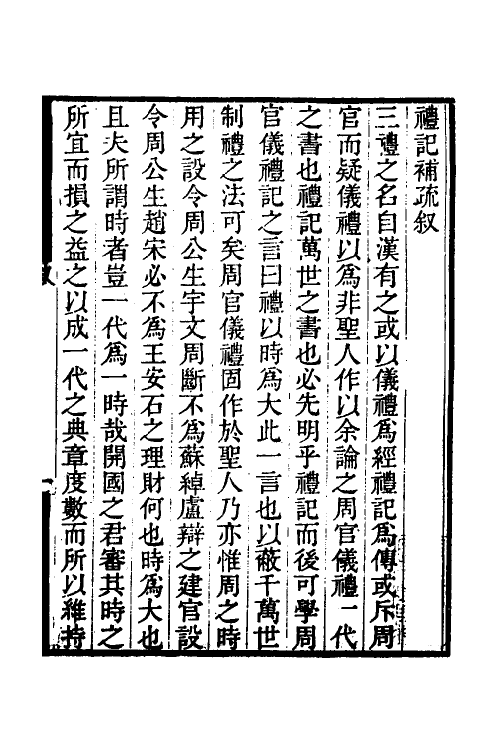 禮記補疏叙
三禮之名自漢有之或以儀禮爲經禮記爲傳或斥周
官而疑儀禮以爲非聖人作以余論之周官儀禮一代
之書也禮記萬世之書也必先明乎禮記而後可學周
官儀禮記之言曰禮以時爲大此一言也以蔽千萬世
制禮之法可矣周官儀禮固作於聖人乃亦惟周之時
用之設令周公生宇文周斷不爲蘇綽盧辯之建官設
令周公生趙宋必不爲王安石之理財何也時爲大也
且夫所謂時者豈一代爲一時哉開國之君審其時之
所宜而損之益之以成一代之典章度數而所以維持